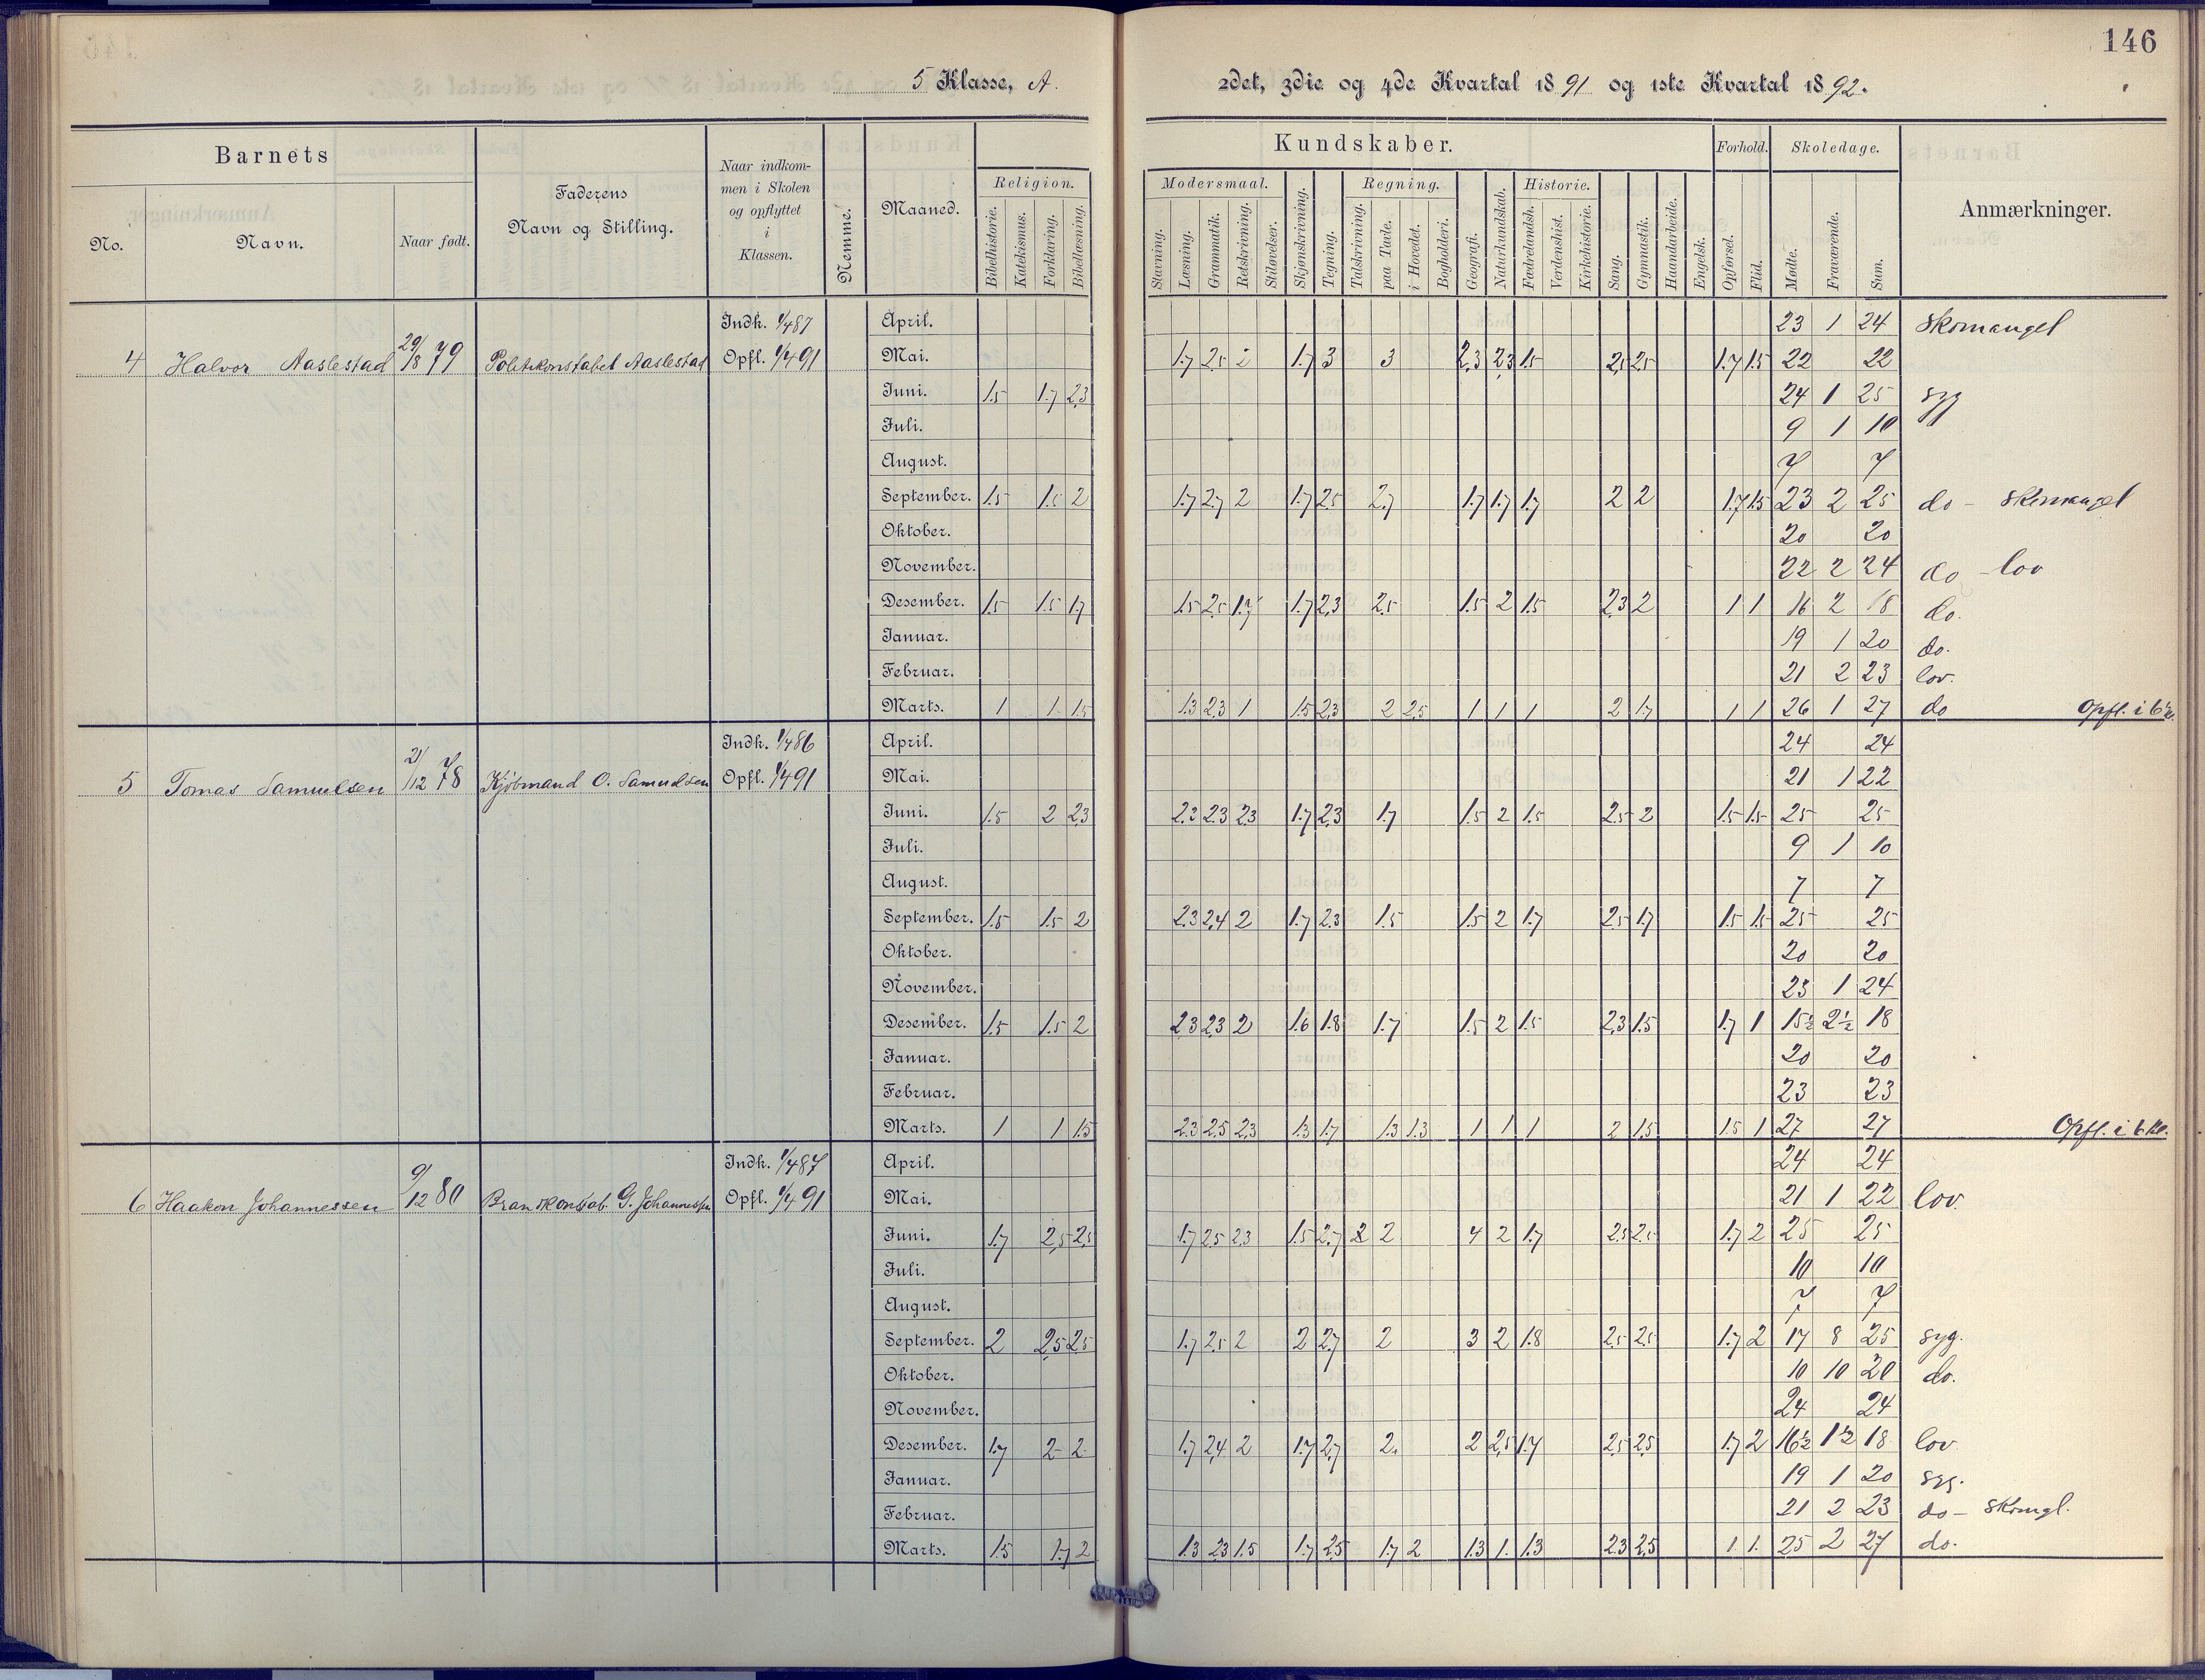 146
5 Klasse, A.
2det, 3die og 4de Kvartal 1891 og 1ste Kvartal 1892.
Barnets
Faderens
Navn og Stilling.
Naar indkom-
men i Skolen
og opflyttet
i
Klassen.
Nemme.
Maaned.
Kundskaber.
Forhold.
Skoledage.
Anmærkninger.
No.
Navn.
Naar født.
Religion.
Modersmaal.
Regning.
Historie.
Bibelhistorie.
Katekismus.
Forklaring.
Bibellæsning.
Stavning.
Læsning.
Grammatik.
Retskrivning.
Stiløvelser.
Skjønskrivning.
Tegning.
Talskrivning.
paa Tavle.
i Hovedet.
Bogholderi.
Geografi.
Naturkundskab.
Fædrelandsh.
Verdenshist.
Kirkehistorie.
Sang.
Gymnastik.
Haandarbeide.
Engelsk.
Opførsel.
Flid.
Mødte.
Fraværende.
Sum.
4 Halvor Aaslestad 29/8 79 Politikonstabel Aaslestad
Indk. 1/4 87
Opfl. 1/4 91
April. 23 1 24 Skomangel
Mai. 1.7 2.5 2 1.7 3 3 2.3 2.3 1.5 2.5 2.5 1.7 1.5 22 22
Juni. 1.5 1.7 2.3 24 1 25 syg
Juli. 9 1 10
August. 7 7
September. 1.5 1.5 2 1.7 2.7 2 1.7 2.5 2.7 1.7 1.7 1.7 2 2 1.7 1.5 23 2 25 do - Skomangel
Oktober. 20 20
November. 22 2 24 do - lov
Desember. 1.5 1.5 1.7 1.5 2.5 1.7 1.7 2.3 2.5 1.5 2 1.5 2.3 2 1 1 16 2 18 do.
Januar. 19 1 20 do.
Februar. 21 2 23 lov.
Marts. 1 1 1.5 1.3 2.3 1 1.5 2.3 2 2.5 1 1 1 2 1.7 1 1 26 1 27 do Opfl. i 6 kl.
5 Tomas Samuelsen 21/12 78 Kjöbmand O. Samuelsen
Indk. 1/4 86
Opfl. 1/4 91
April. 24 24
Mai. 21 1 22
Juni. 1.5 2 2.3 2.3 2.3 2.3 1.7 2.3 1.7 1.5 2 1.5 2.5 2 1.5 1.5 25 25
Juli. 9 1 10
August. 7 7
September. 1.5 1.5 2 2.3 2.4 2 1.7 2.3 1.5 1.5 2 1.7 2.5 1.7 1.5 1.5 25 25
Oktober. 20 20
November. 23 1 24
Desember. 1.5 1.5 2 2.3 2.3 2 1.6 1.8 1.7 1.5 2 1.5 2.3 1.5 1.7 1 15½ 2½ 18
Januar. 20 20
Februar. 23 23
Marts. 1 1 1.5 2.3 2.5 2.3 1.3 1.7 1.3 1.3 1 1 1 2 1.5 1.5 1 27 27 Opfl. i 6 kl.
6 Haakon Johannessen 9/12 80 Brandkonstab. G. Johannessen
Indk. 1/4 87
Opfl. 1/4 91
April. 24 24
Mai. 21 1 22 lov.
Juni. 1.7 2.5 2.5 1.7 2.5 2.3 1.5 2.7 2 2 4 2 1.7 2.5 2.5 1.7 2 25 25
Juli. 10 10
August. 7 7
September. 2 2.5 2.5 1.7 2.5 2 2 2.7 2 3 2 1.8 2.5 2.5 1.7 2 17 8 25 syg.
Oktober. 10 10 20 do.
November. 24 24
Desember. 1.7 2 2 1.7 2.4 2 1.7 2.7 2. 2 2.5 1.7 2.5 2.5 1.7 2 16½ 1½ 18 lov
Januar. 19 1 20 syg.
Februar. 21 2 23 do - Skomgl.
Marts. 1.5 1.7 2 1.3 2.3 1.5 1.7 2.5 1.7 2 1.3 1. 1.3 2.3 2.5 1. 1. 25 2 27 do.